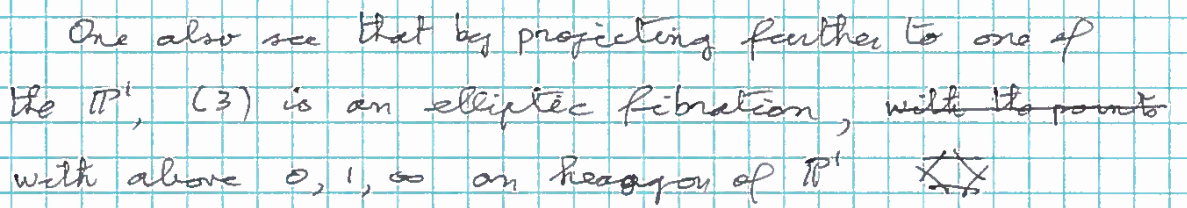 One also see that by projecting further to one of
the ℙ¹, (3) is an elliptic fibration, with the points
with above 0, 1, ∞ an hexagon of ℙ¹